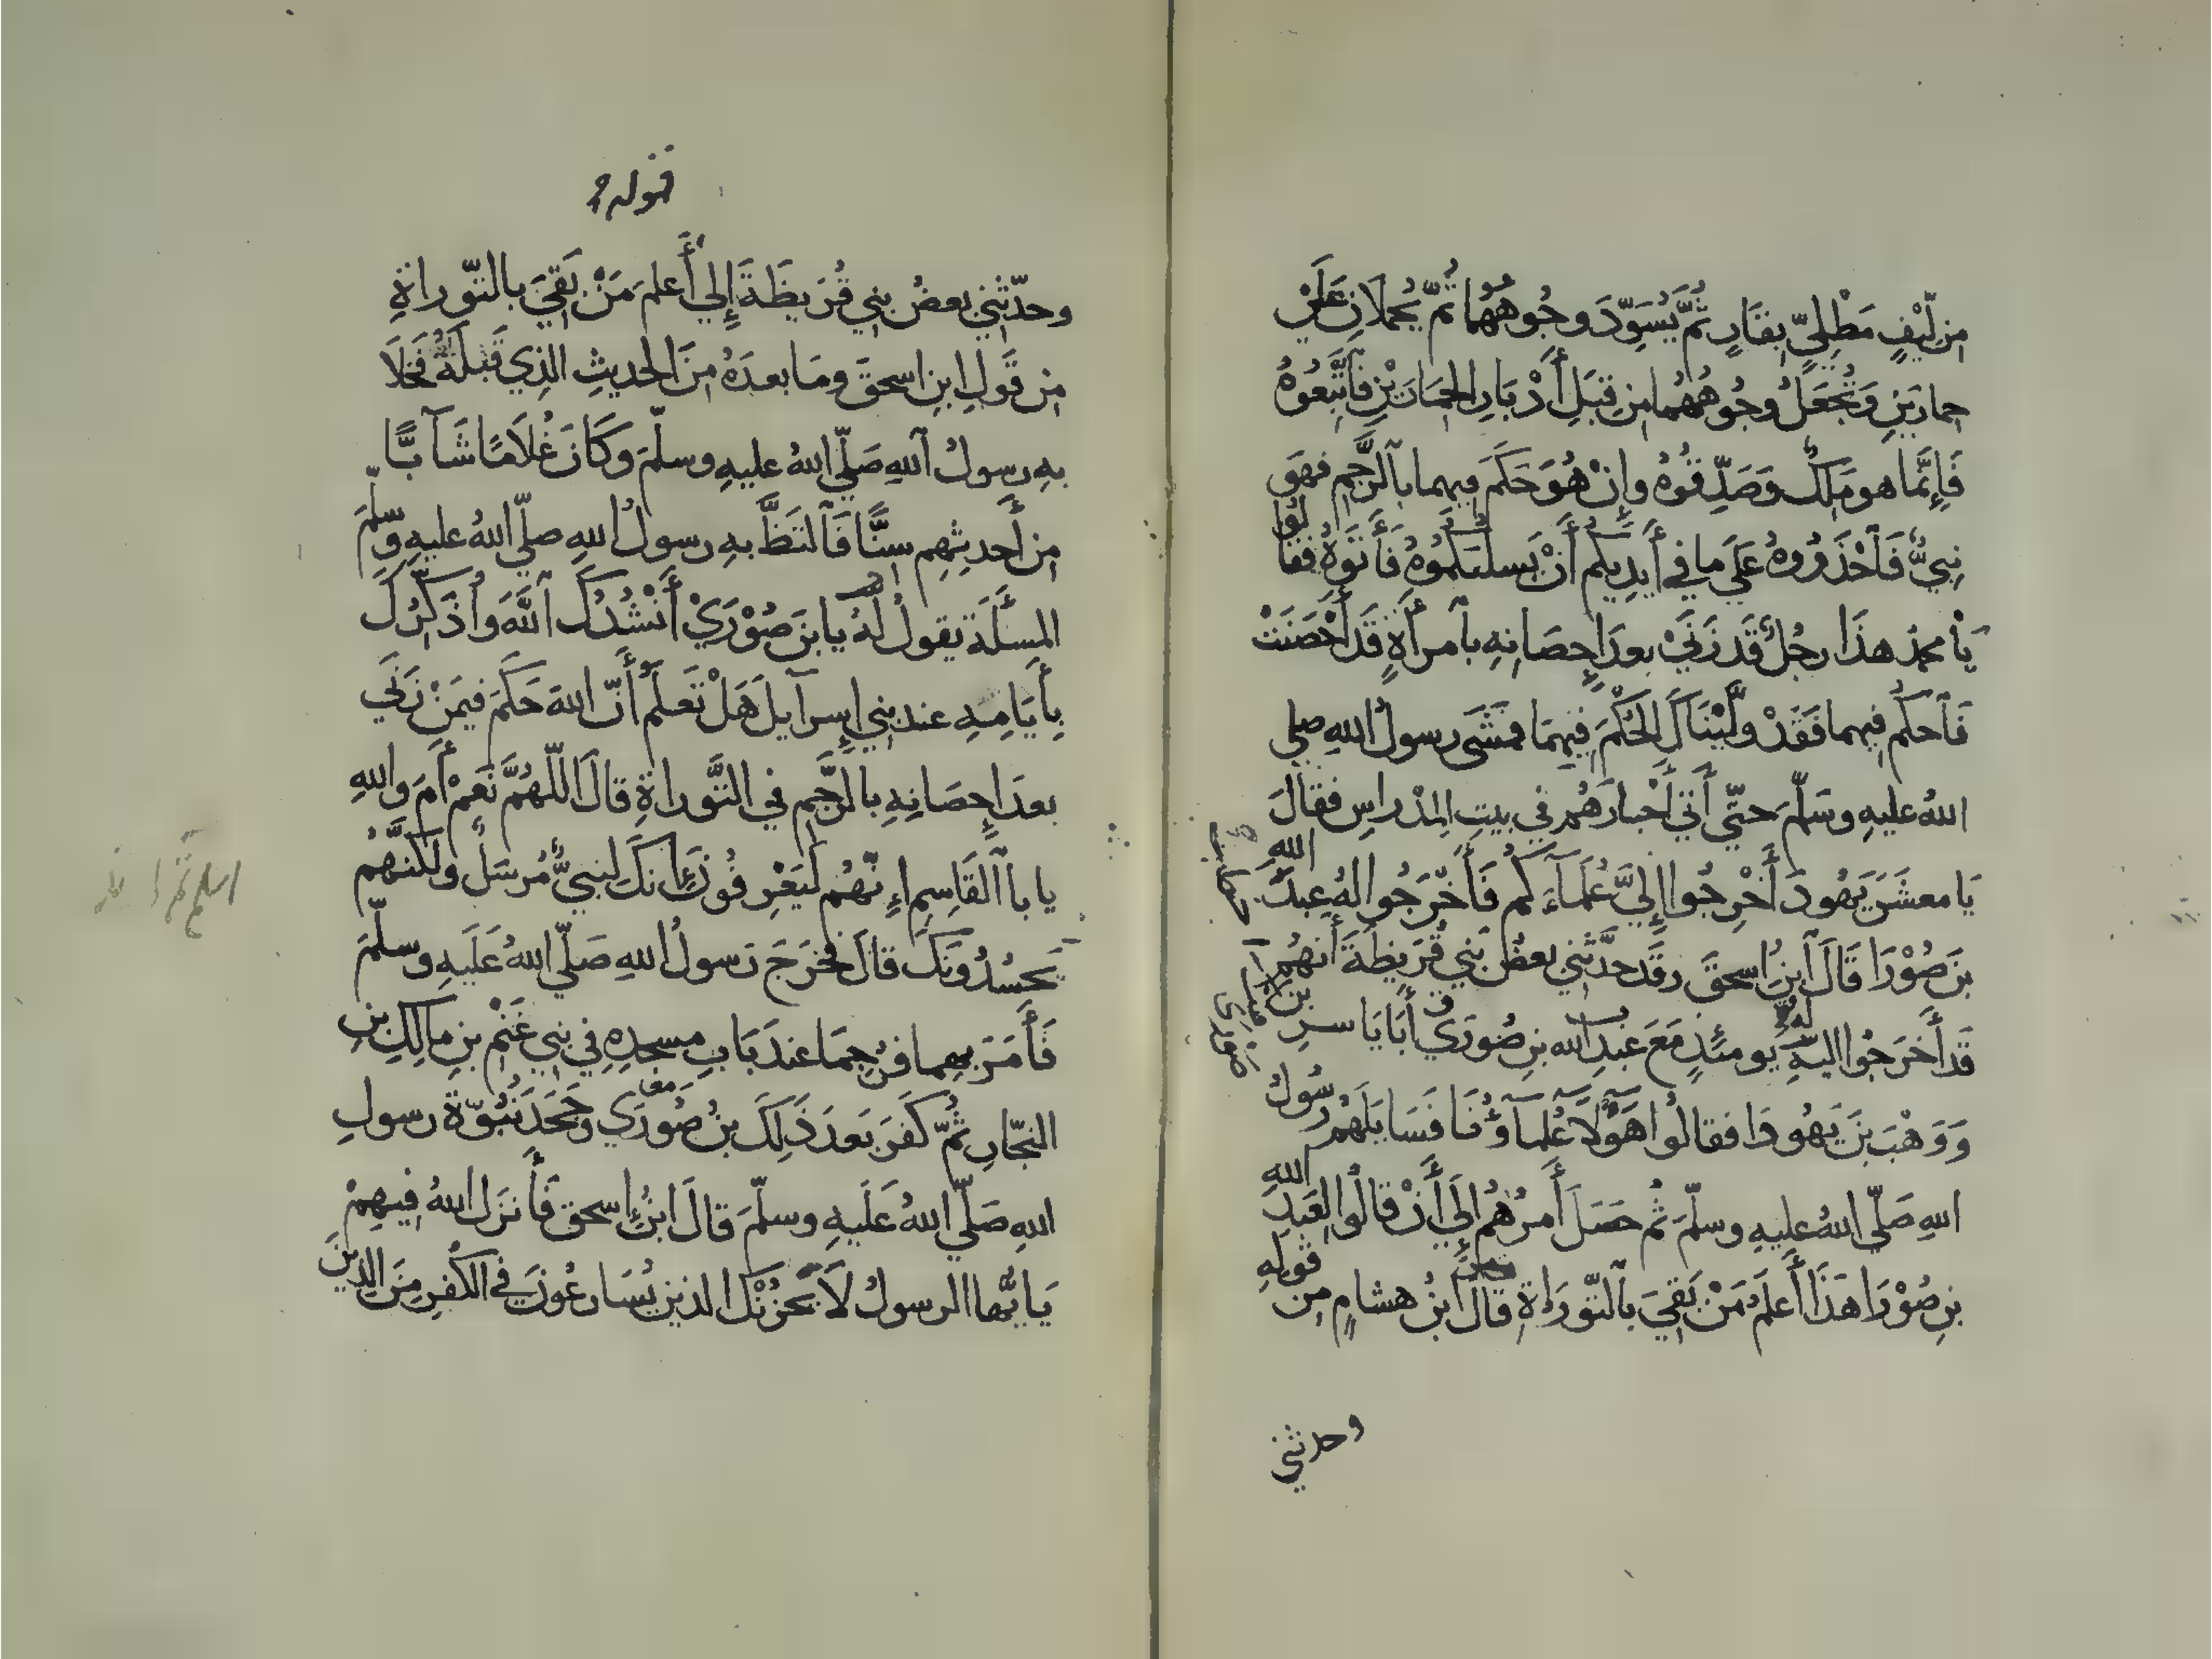 مِن لِّيْفٍ مَطْلِيٍّ بِقَارٍ ثُمَّ يُسَوِّدُ وجُوهُهُمَا ثُمَّ يُحملَانِ عَلَىٰ
حمارَينِ وَتُجْعَلُ وجُوهُهُما مِن قِبَلِ أَدْبَارِ الحِمَارَيْنِ فَاتَّبِعُوهُ
فَإِنَّمَا هو مَلِكٌ وَصَدِّقُوهُ وإِنْ هُوَ حَكَمَ فِيهما بِالرَّجمِ فهوَ
نبِيٌّ فَاحْذَرُوهُ عَلَى ما فِي أَيدِيكُم أَنْ يَسلُبَكُمُوهُ فَأَتَوهُ فقَالُوا
يَا محمدُ هذَا رجُلٌ قَد زَنَىٰ بعدَ إِحصَانِهِ بامرأَةٍ قَد أُحْصَنَتْ
فَاحكُم فِيهما فَقَدْ ولَّيْنَاكَ الحُكْمَ فِيهِمَا فمَشَى رسولُ اللهِ صلى
اللهُ عليهِ وسَلَّمَ حتَّى أَتَى أَحْبارَهُم فِي بيتِ المِدْراسِ فقالَ
يَا معشَرَ يَهُودَ أَخْرِجُوا إِلَيَّ عُلَمَاءَكُم فَأَخْرَجُوا لهُ عبدَ اللهِ
بنَ صُوْرَا قَالَ ابنُ اسحقَ وقَد حدَّثَنِي بعضُ بَنِي قُرَيظَةَ أَنهُم
قَد أَخرَجُوا اليهِ يومئذٍ مَعَ عَبدِ الله بنِ صُورَى أَبَا يَاسرِ بن
وَوَهْبَ بنَ يَهُودَا فقالُوا هَؤُلَاءِ عُلَمَاؤُنَا فَسَايَلَهُم رسُولُ
اللهِ صَلَّى اللهُ عليهِ وسلَّمَ ثُم حَصَلَ أَمرُهُم إِلَى أَنْ قالُوا لِعَبدِ اللهِ
بنِ صُوْرَا هَذَا أَعلَمُ مَنْ بَقِيَ بالتَّورَاةِ قالَ ابنُ هشامٍ مِن قَولِهِ
وحدثني
قوله
وحدَّثَنِي بعضُ بنِي قُرَيظَةَ إِلى أَعلمَ مَنْ بَقِيَ بالتَّوراةِ
مِن قَولِ ابنِ اسحقَ ومَا بعدَهُ مِنَ الحديثِ الذِي قَبلَهُ فخَلَا
بهِ رسولُ اللهِ صَلَّى اللهُ عليهِ وسلَّمَ وكَانَ غُلَامًا شَآبًّا
مِن أَحدثِهِم سِنًّا فَالتَظَّ بهِ رسولُ اللهِ صلَّى اللهُ عليهِ وسلَّمَ
المسئَلَةَ يقولُ لهُ يا بنَ صُوْرَىْ أَنْشُدُكَ اللَّهَ وأُذَكِّرُكَ
بِأَيَامِهِ عند بنِي إِسرآيلَ هَلْ تَعلَمُ أَنَّ اللهَ حَكَمَ فيمَنْ زَنَى
بعدَ إِحصَانِهِ بالرَّجمِ فِي التَّوراةِ قالَ اللَّهُمَّ نَعَمْ أَمَ واللهِ
يا با القَاسِمِ إِنَّهُم لَيَعْرِفُونَ إِنكَ لنبِيٌّ مُرسَلٌ ولكنَّهُم
يَحسُدُونَكَ قالَ فخَرَجَ رَسولُ اللهِ صَلَّى اللهُ عَلَيهِ وسلَّمَ
فَأَمَرَ بهِما فرُجِمَا عندَ بَابِ مسجدِهِ فِي بنِي غَنْمِ بنِ مالِكِ بنِ
النجَّارِ ثُمَّ كَفَرَ بَعدَ ذَلِكَ بنُ صُورَى وجَحَدَ نُبُوَّةَ رسولِ
اللهِ صَلَّى اللهُ عَلَيهِ وسلَّمَ قالَ ابنُ إِسحق فَأَنزَلَ اللهُ فِيهِمْ
يَايُّها الرسولُ لَا يَحزُنْكَ الذين يُسَارعُونَ فِي الكُفرِ مِنَ الذِينَ